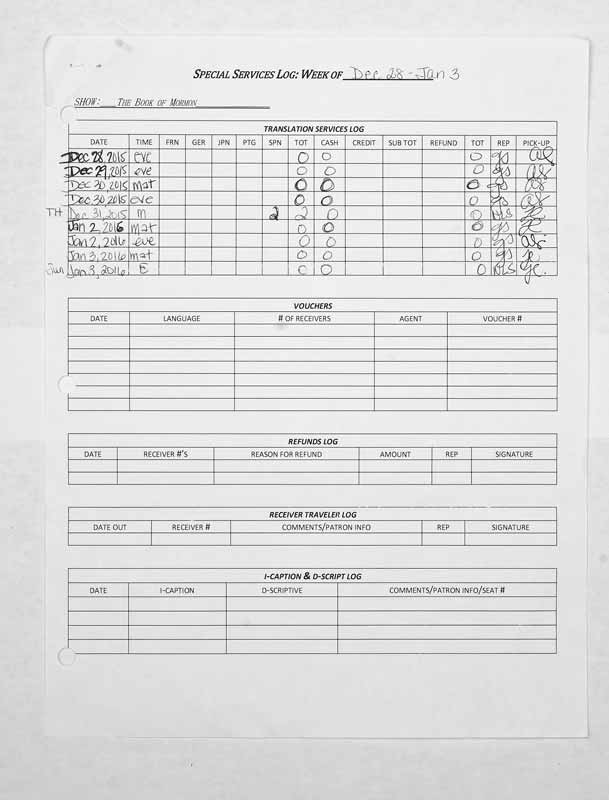 SPECIAL SERVICES LOG: WEEK OF Dec 28 - Jan 3
SHOW: THE BOOK OF MORMON
TRANSLATION SERVICES LOG
DATE TIME FRN GER JPN PTG SPN TOT CASH CREDIT SUB TOT REFUND TOT REP PICK-UP
Dec 28, 2015 eve 0 0 0 gs
Dec 29, 2015 eve 0 0 0 gs
Dec 30, 2015 mat 0 0 0 gs
Dec 30, 2015 eve 0 0 0 gs
TH Dec 31, 2015 m 2 2 0 0
Jan 2, 2016 mat 0 0 0 gs
Jan 2, 2016 eve 0 0 0 gs
Jan 3, 2016 mat 0 0 0 gs
Sun Jan 3, 2016 E 0 0 0
VOUCHERS
DATE LANGUAGE # OF RECEIVERS AGENT VOUCHER #
REFUNDS LOG
DATE RECEIVER #'S REASON FOR REFUND AMOUNT REP SIGNATURE
RECEIVER TRAVELER LOG
DATE OUT RECEIVER # COMMENTS/PATRON INFO REP SIGNATURE
I-CAPTION & D-SCRIPT LOG
DATE I-CAPTION D-SCRIPTIVE COMMENTS/PATRON INFO/SEAT #